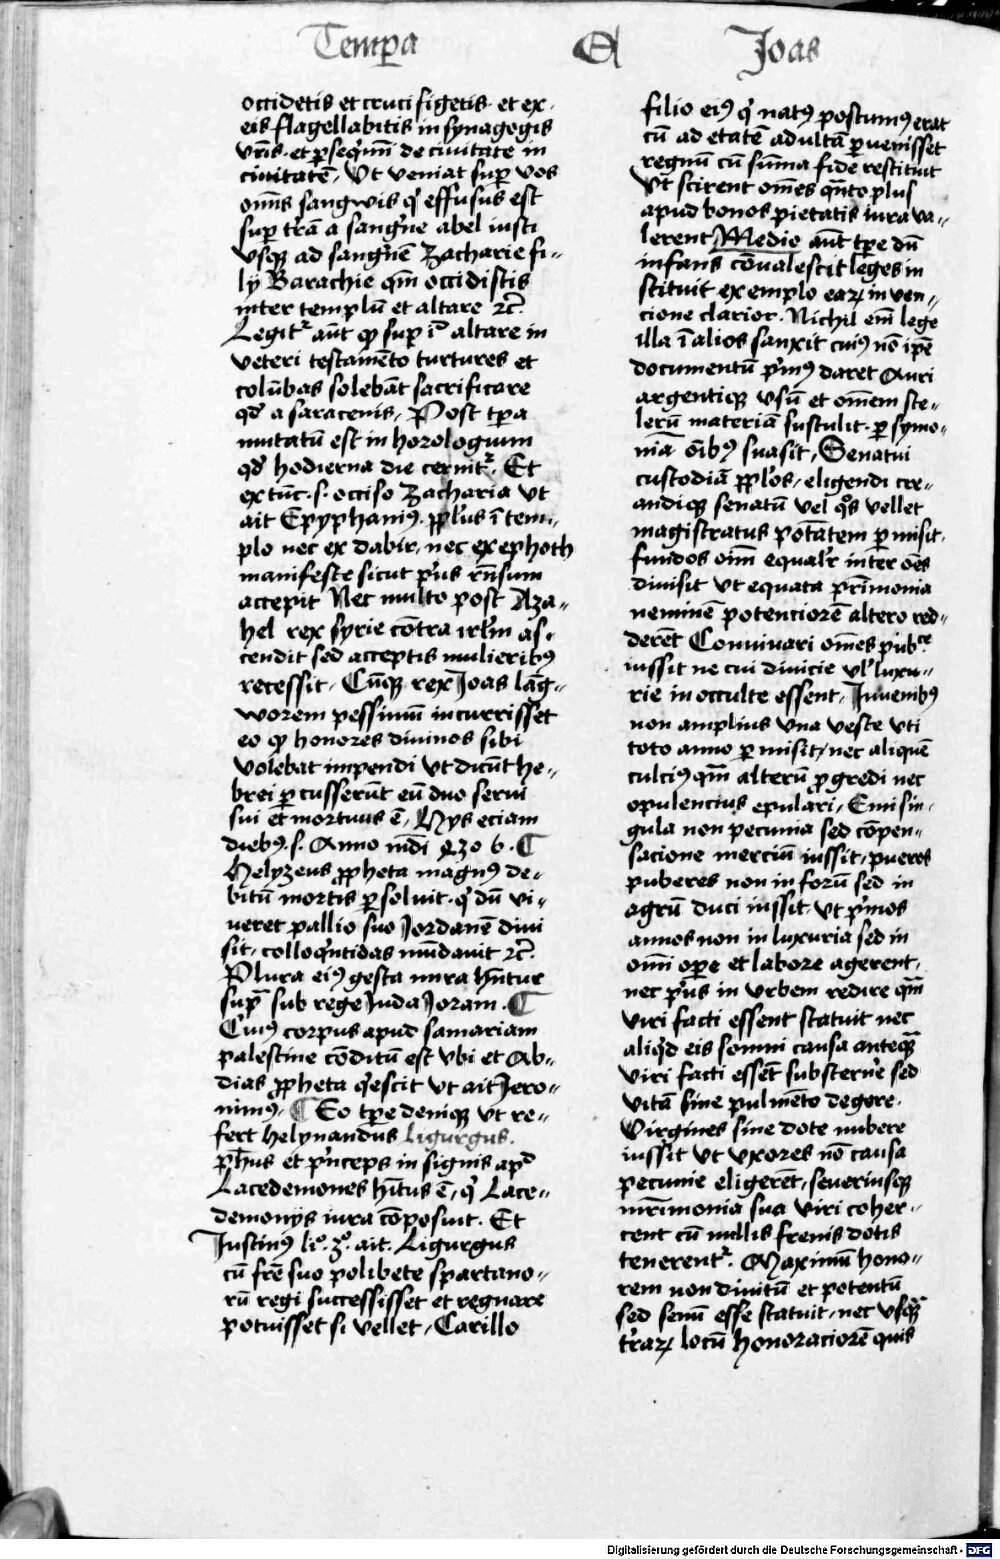 Temꝑa Et Joas
occidetis et crucifigetis· et ex·
eis flagellabitis in synagogis
vr̄is· et ꝑseqm̄i de ciuitate in
ciuitatē, Vt veniat suꝑ vos
om̄s sangwis qͥ effusus est
suꝑ tr̄am a sangͥne abel iusti
vsqꝫ ad sangͥnē Zacharie fi-
lij Barachie qm̄ occidistis
inter templū et altare ⁊c̄
Legitᷣ aūt qp suꝑ iᵒ altare in
veteri testamēto turtures et
colūbas solebāt sacrificare
qd̄ a saracenis, Post tꝑa
mutatū est in horologium
qd̄ hodierna die cernitᷣ, Et
ex tūc·s· occiso Zacharia vt
ait Epyphaniꝰ, ꝓpl̄us ī tem-
plo nec ex dabir, nec ex ephoth
manifeste sicut pͥus rn̄sum
accepit Nec multo post Aza-
hel rex syrie cōtra irl̄m as-
cendit sed acceptis mulieribꝫ
recessit, Cūqꝫ rex Joas lāg-
worem pessimū incurrisset
eo qp honores diuinos sibi
volebat impendi vt dicūt he-
brei ꝑcusserūt eū duo serui
sui et mortuus ē, Hys eciam
diebꝫ·s· Anno mūdi 4306·
Helyzeus ꝓpheta magnꝰ de-
bitū mortis ꝑsoluit· qͥ dū vi-
ueret pallio suo Jordanē diui
sit, colloqͥntidas mūdauit ⁊c̄
Plura eiꝰ gesta mira hn̄tur
supᷓ sub rege Juda Joram·
Cuiꝰ corpus apud samariam
palestine cōditū est vbi et Ab-
dias ꝓpheta qͥescit vt ait Jero-
nimꝰ, Eo tꝑe deniqꝫ vt re-
fert helynandus Ligurgus·
ph̄us et pͥnceps in signis apᵈ
Lacedemones hītus ē, qͥ Lace-
demonijs iura cōposuit· Et
Justinꝰ liᵒ·3ᵒ· ait· Ligurgus
cū frē suo polibete spartano-
rū regi successisset et regnare
potuisset si vellet, Carillo
filio eiꝰ qͥ natꝰ postumꝰ erat
cū ad etatē adultā ꝑuenisset
regnū cū sūma fide restituit
Vt scirent om̄es qn̄to plus
apud bonos pietatis iura va-
lerent Medio aūt tꝑe dū
infans cōualescit leges in
stituit ex emplo eaꝝ inuen-
cione clarior· Nichil em̄ lege
illa ī alios sanxit cuiꝰ nō ipē
documentū pͥmꝰ daret Auri
argentiqꝫ vsū et om̄em sce-
lerū materiā sustulit· ꝑ symo-
niā oībꝫ suasit, Senatui
custodiā ꝓpl̄os, eligendi cre-
andiqꝫ senatū vel qͦs vellet
magistratus potātem ꝑmisit·
fundos oim̄ equalr̄ inter oēs
diuisit vt equata prīmonia
neminē potenciorē altero red-
derēt Conuiuari om̄es pubᶜᵉ
iussit ne cui diuicie vl̄ luxu-
rie in occulte essent, Juuenibꝫ
non amplius vna veste vti
toto anno ꝑmisit, nec aliquē
culciꝰ qm̄ alterū ꝓgredi nec
opulencius epulari, Emi sin-
gula non pecunia sed cōpen-
sacione merciū iussit, pueros
puberes non in forū sed in
agrū duci iussit, vt pͥmos
annos non in luxuria sed in
om̄i oꝑe et labore agerent,
nec pͥus in vrbem redire qm̄
viri facti essent statuit nec
aliqͥd eis somni causa anteqᷓꝫ
viri facti essēt substerne sed
vitā sine pulmēto degere·
Virgines sine dote nubere
iussit vt vxores nō causa
pecunie eligerēt, seueriusqꝫ
mr̄imonia sua viri coher-
cent cū nullis frenis dotis
tenerentᷣ· Maximū hono-
rem non diuitū et potentū
sed senū esse statuit, nec vsqᷓꝫ
tr̄aꝝ locū honoraciorē quis
Digitalisierung gefördert durch die Deutsche Forschungsgemeinschaft - DFG